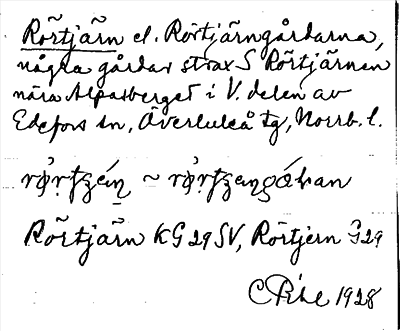 Rörtjärn el. Rörtjärngårdarna,
några gårdar strax S Rörtjärnen
nära Alpasberget i V. delen av
Edefors sn, Överluleå tg, Norrb. l.
~
Rörtjärn KG 29 SV, Rörtjern G 29
1928